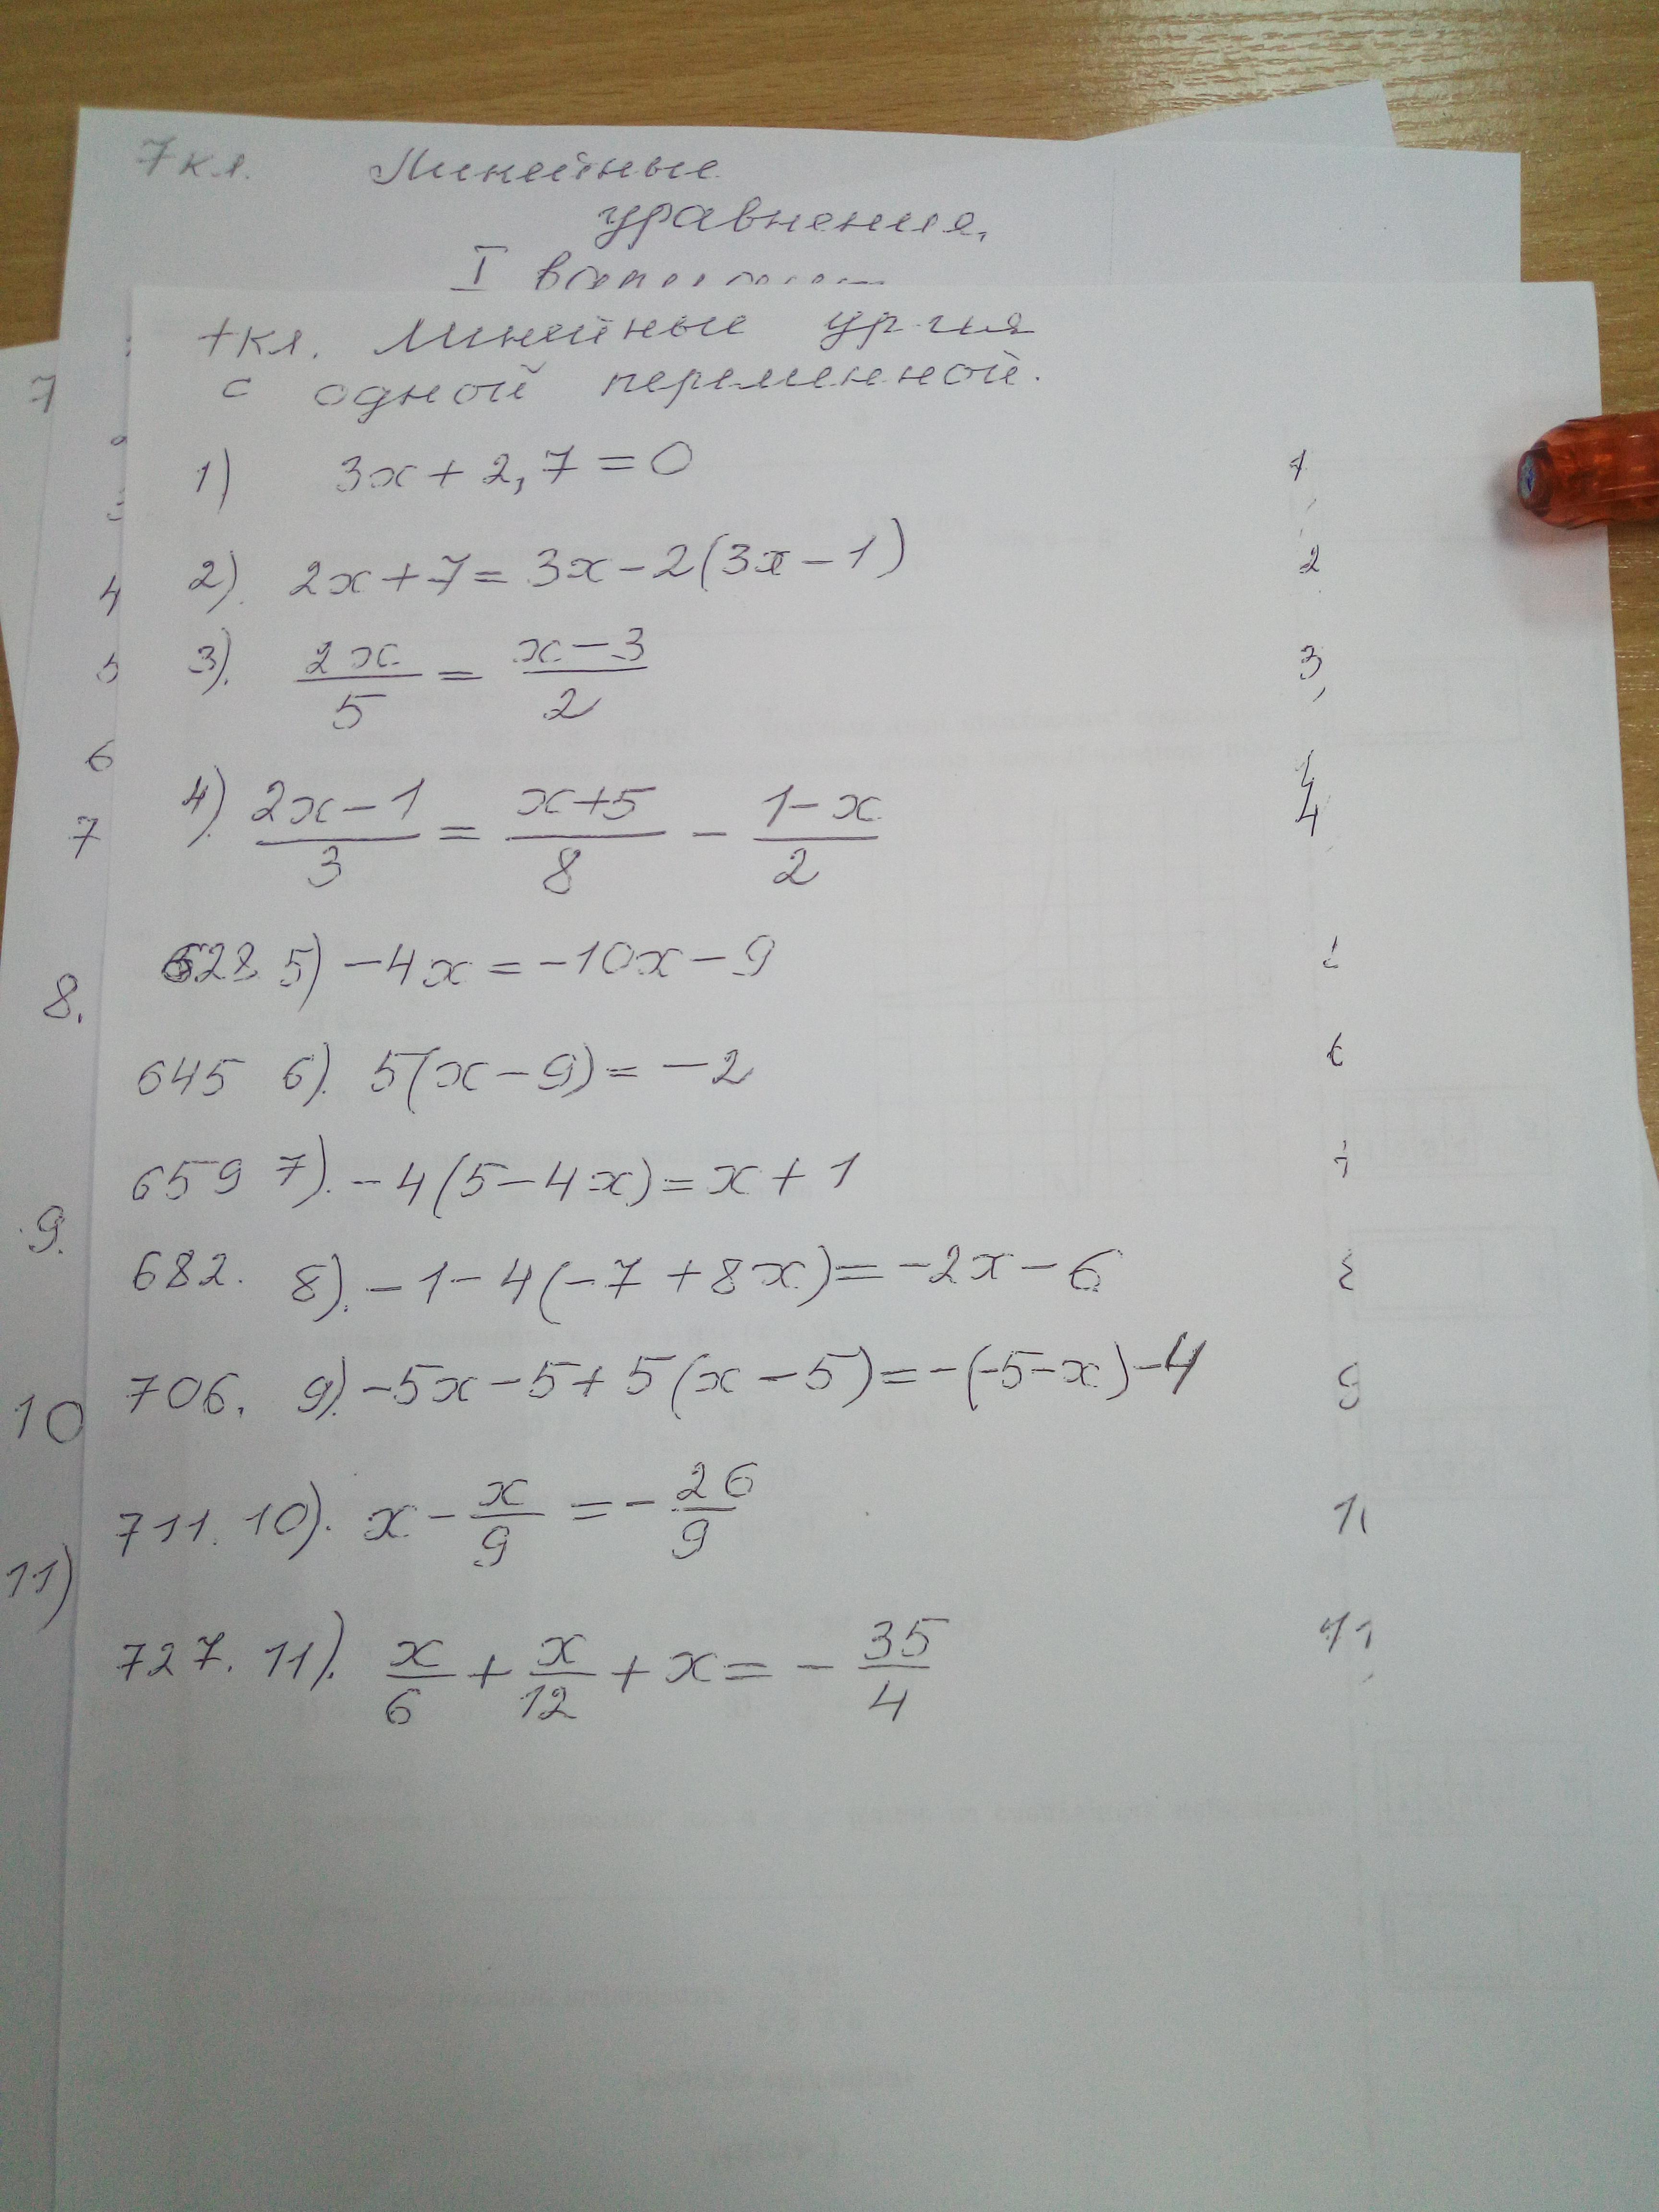 7 кл. Линейные
уравнения.
I
7кл. Линейные ур-ния
с одной переменной.
1) 3x + 2,7 = 0
2). 2x + 7 = 3x - 2(3x - 1)
3). 2x/5 = (x-3)/2
4). (2x-1)/3 = (x+5)/8 - (1-x)/2
628. 5) -4x = -10x - 9
645 6). 5(x - 9) = -2
659 7). -4(5 - 4x) = x + 1
682. 8). -1 - 4(-7 + 8x) = -2x - 6
706. 9). -5x - 5 + 5(x - 5) = -(-5 - x) - 4
711. 10). x - x/9 = - 26/9
727. 11). x/6 + x/12 + x = - 35/4
7
4
5
6
7
8.
9.
10
11)
1
2
3,
4
9
11